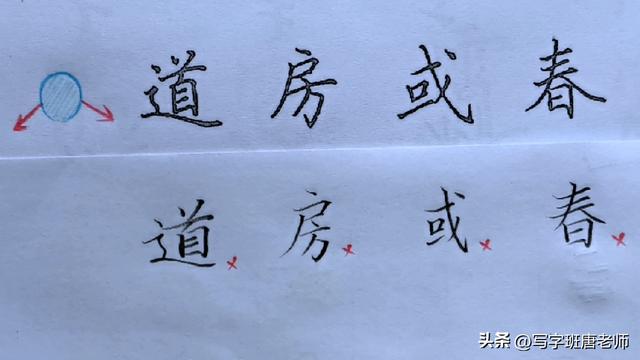 道房或春
道房或春
头条 @写字班唐老师